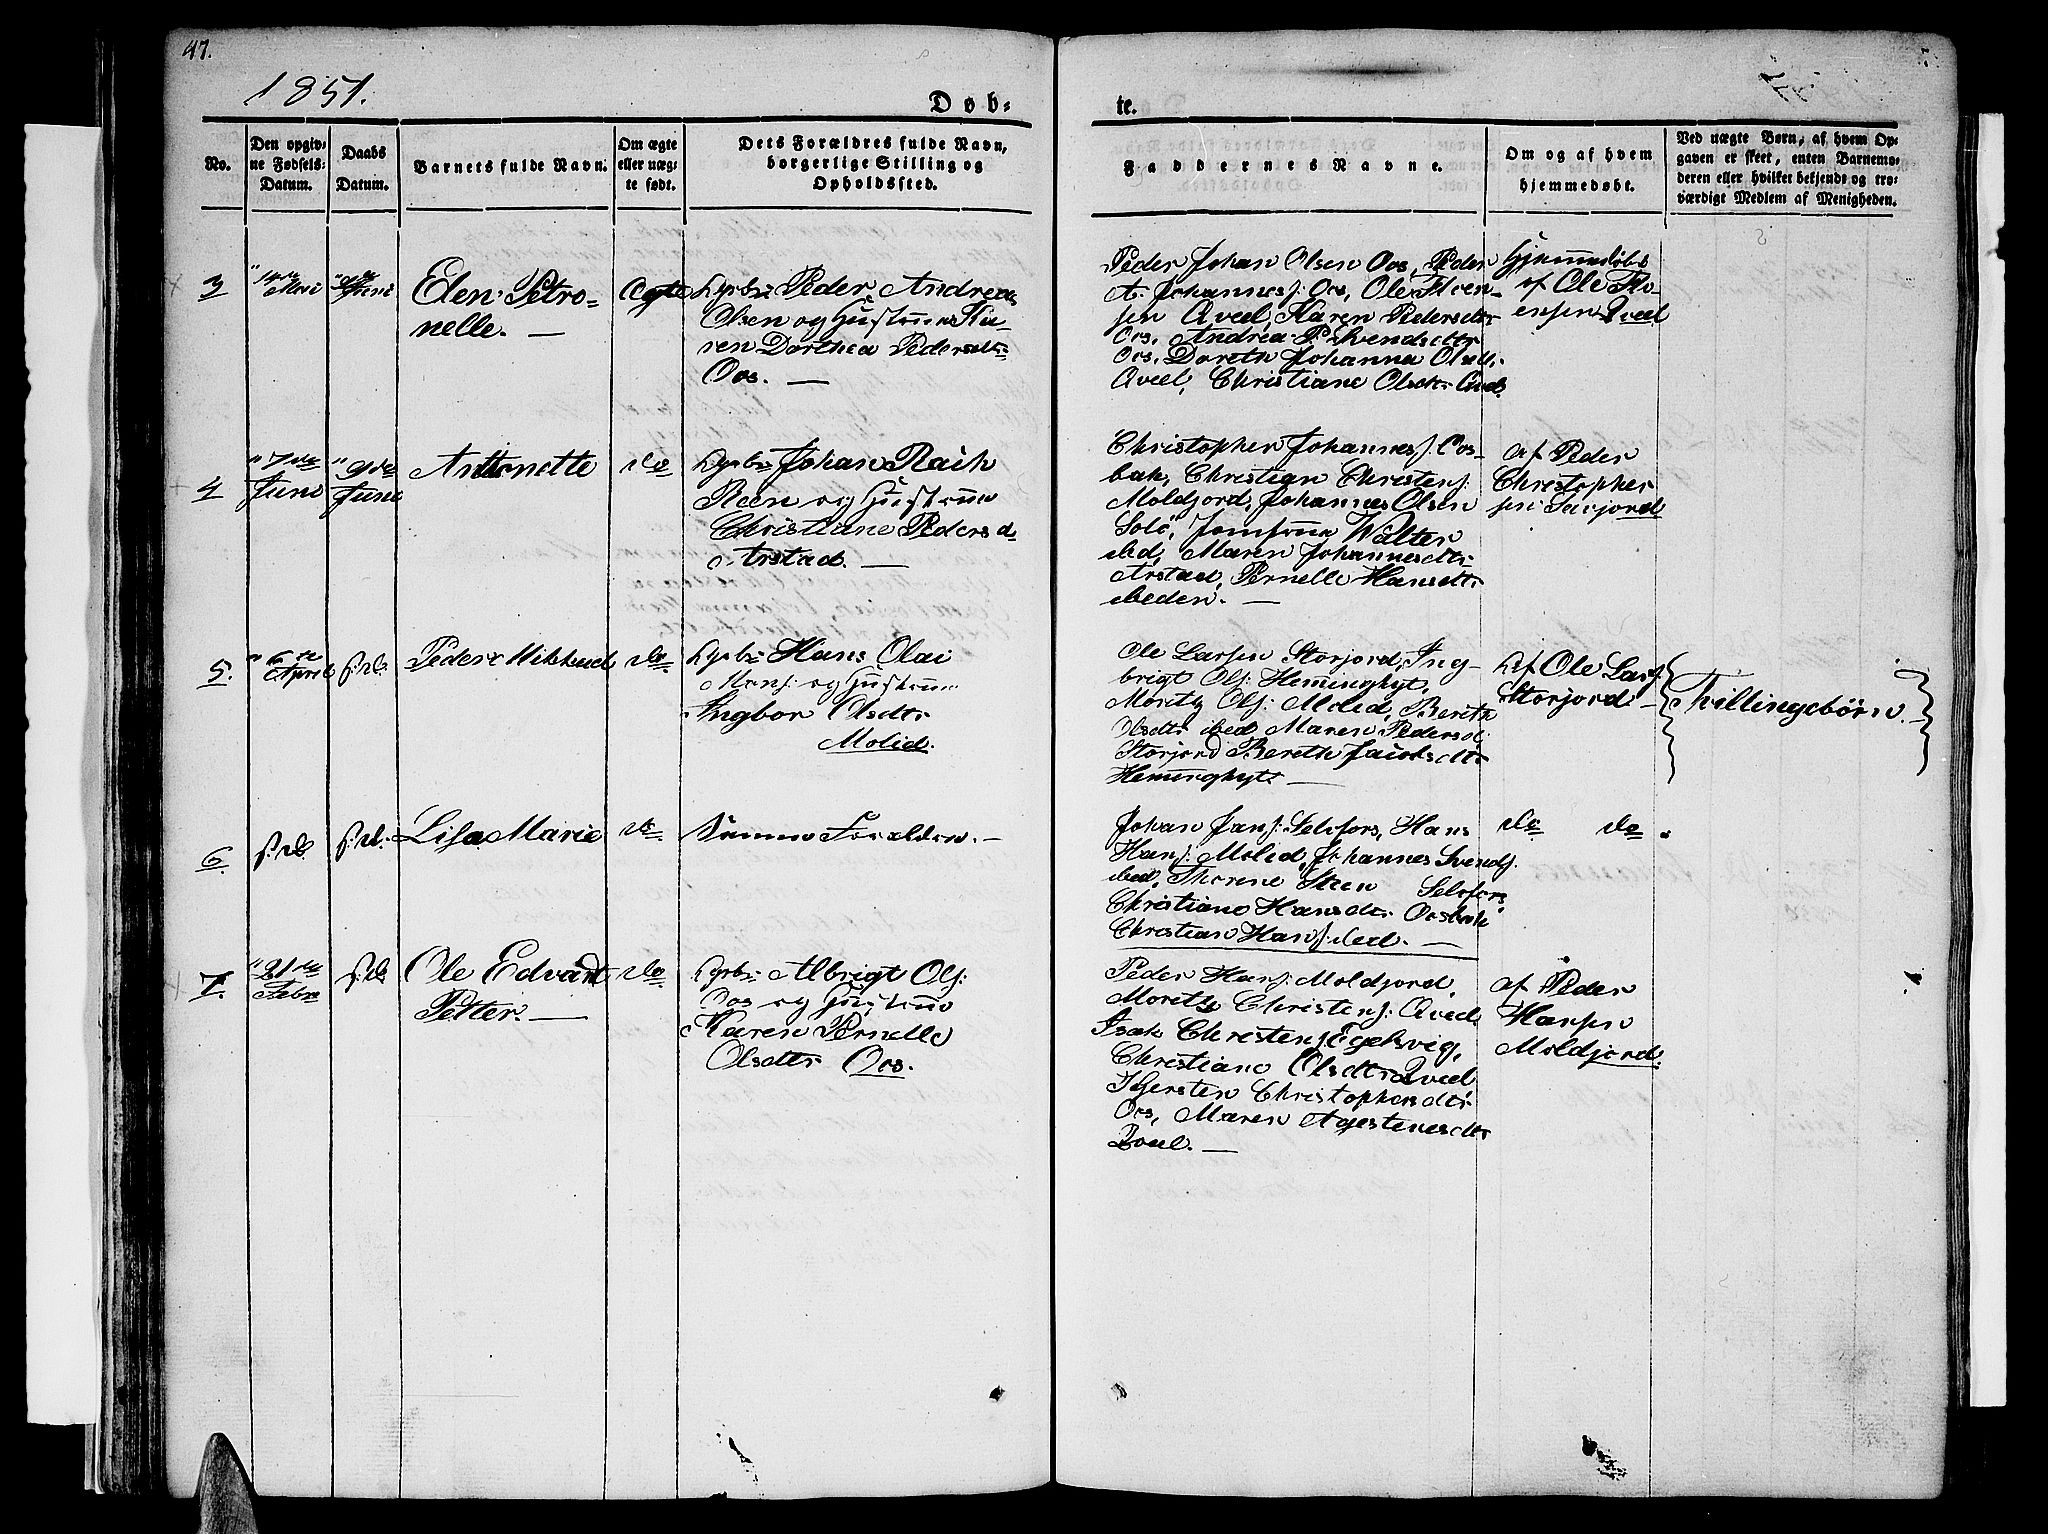 47.
1851.
Døb-
te.
No.
Den opgiv-
ne Fødsels-
Datum.
Daabs
Datum.
Barnets fulde Navn.
Om ægte
eller uæg-
te født.
Dets Forældres fulde Navn,
borgerlige Stilling og
Opholdssted.
Faddernes Navne.
Om og af hvem
hjemmedøbt.
Ved uægte Børn, af hvem Op-
gaven er skeet, enten Barnemo-
deren eller hvilket bekjendt og tro-
værdigt Medlem af Menigheden.
3
Mai
Juni
Elen Petro-
nelle. —
Ægte
Peder Andreas
Olsen og Hustrue Ka-
ren Dorthea Pedersdtr
Oos. —
Peder Johan Olsen Oos, Peder
A. Johannesf: Oos, Ole Steen-
sen Qveel, Karen Pedersdtr
Oos, Andrea P. Svendsdtr
Oos, Doreth Johanna Olsdtr
Qveel, Christiane Olsdtr
Hjemmedøbt
af Ole Ste-
ensen Qveel
4
7de
Juni
9de
Juni
Antonette
do
Johan Raik
Steen og Hustrue
Christiane Pedersd
Arstad. —
Christopher Johannesf. Oos-
bak, Christian Christenf.
Moldjord, Johannes Olsen
Solø, Jomfrue Walter
ibid, Maren Johannesdtr
Arstad, Pernelle Hansdtr
ibeden. —
af Peder
Christopher
sen
5.
6te
April
s: d.
Peder Mikkael
do
Hans Olai
Hansf: og Hustrue
Ingbor Olsdtr
Molid.
Ole Larsen Storjord, Ing-
brigt Olf: Heminghyt,
Moritz Olf: Molid, Bereth
Olsdtr ibed, Maren Pedersd.
Storjord, Bereth Jacobsdtr
Heminghyt —
af Ole Larf.
Storjord —
Tvillingebørn.
6
s: d.
s: d.
Lisa Marie
do
Samme Forældre. —
Johan Janf: Selsfors, Hans
Hansf. Molid, Johannes Svendf.
ibed, Thorine Steen Selsfors
Christiane Hansdtr Oosbak
Christian Hansf: ibed. —
do do.
7.
21de
Febr
s: d
Ole Edvart
Petter. —
do
Albrigt Olf:
Oos og Hustrue
Karen Pernelle
Olsdtr Oos.
Peder Hansf: Moldjord,
Moritz Christenf: Qveel,
Isak Christenf Egelsvig,
Christiane Olsdtr Qveel
Kjersten Christophersdtr
Oos, Maren Agestenesdtr
Qveel. —
af Peder
Hansen
Moldjord.